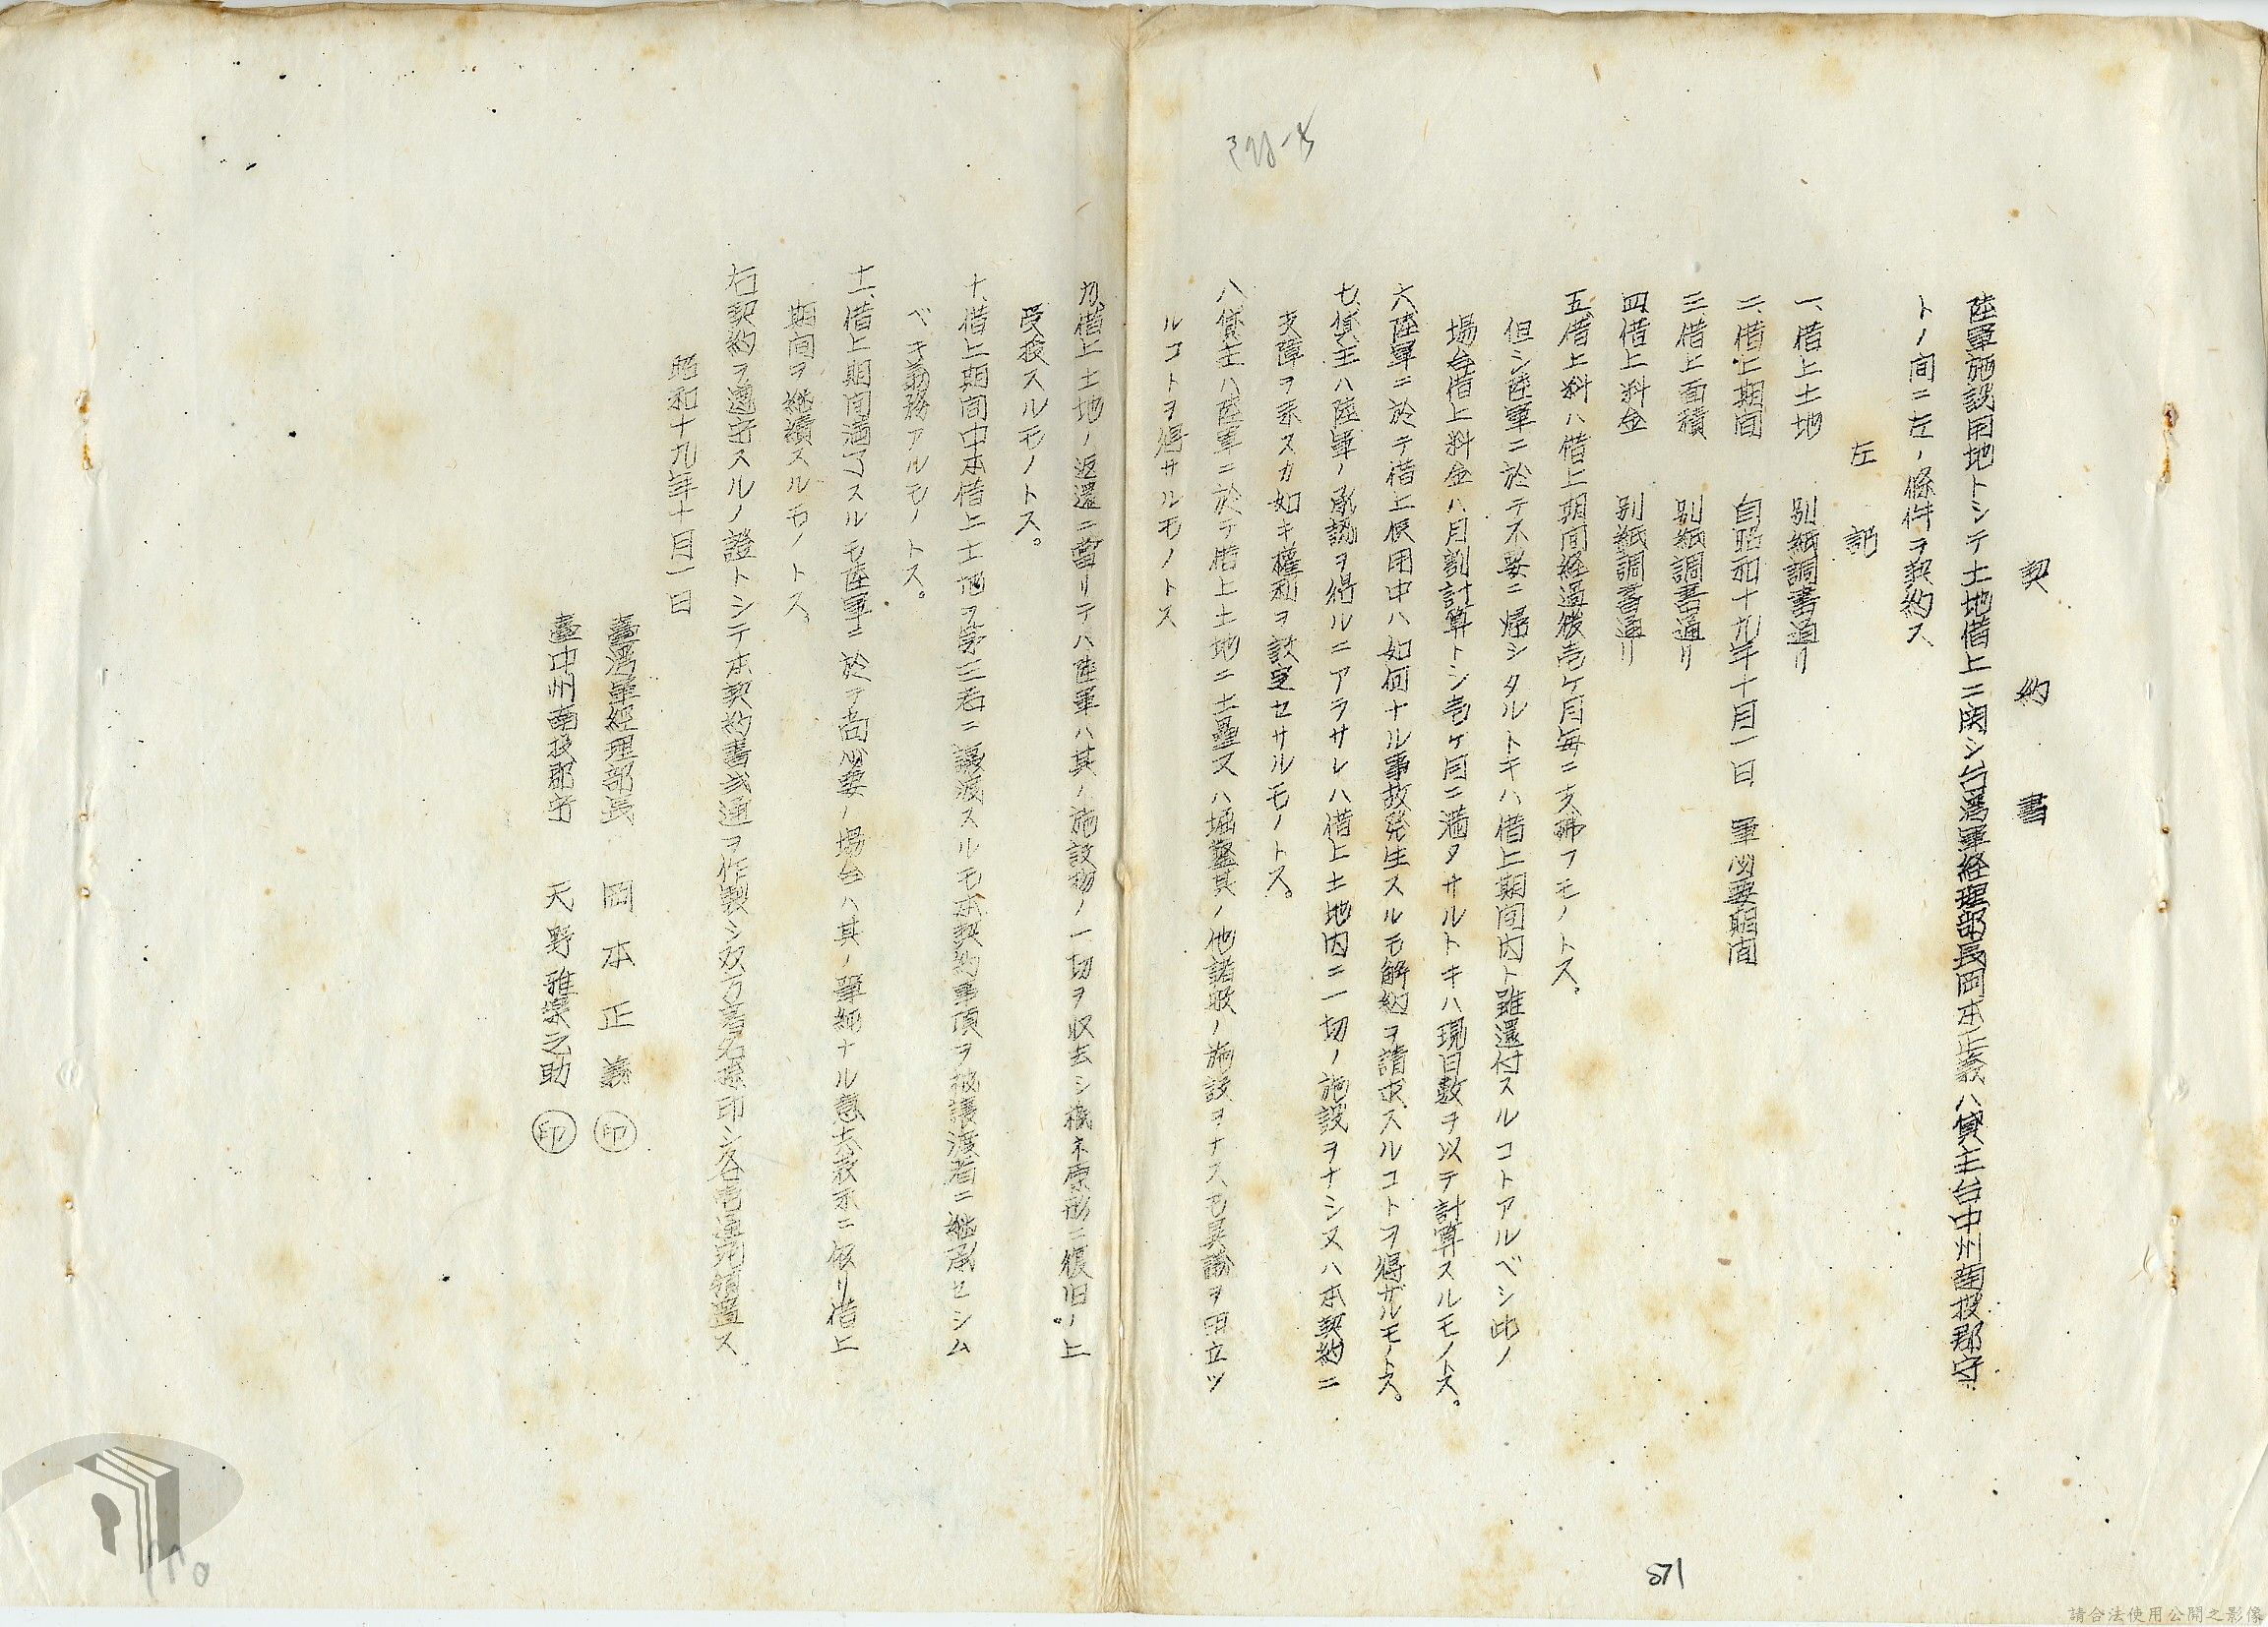 契約書
陸軍施設用地トシテ土地借上ニ関シ台灣軍経理部長岡本正義ハ貸主台中州南投郡守
トノ間ニ左ノ條件ヲ契約ス
左記
一、借上土地 別紙調書通リ
二、借上期間 自昭和十九年十月一日 軍必要期間
三、借上面積 別紙調書通リ
四、借上料金 別紙調書通リ
五、借上料ハ借上期間経過後壱ケ月毎ニ支拂フモノトス。
但シ陸軍ニ於テ不要ニ帰シタルトキハ借上期間内ト雖還付スルコトアルベシ此ノ
場合借上料金ハ月割計算トシ壱ケ月ニ満タサルトキハ現日数ヲ以テ計算スルモノトス。
六、陸軍ニ於テ借上使用中ハ如何ナル事故発生スルモ解約ヲ請求スルコトヲ得ザルモノトス。
七、貸主ハ陸軍ノ承認ヲ得ルニアラサレハ借上土地内ニ一切ノ施設ヲナシ又ハ本契約ニ
支障ヲ来スカ如キ權利ヲ設定セサルモノトス。
八、貸主ハ陸軍ニ於テ借上土地ニ土壘又ハ堀鑿其ノ他諸般ノ施設ヲナスモ異議ヲ申立ツ
ルコトヲ得サルモノトス
九、借上土地ノ返還ニ當リテハ陸軍ハ其ノ施設物ノ一切ヲ収去シ概ネ原形ニ復旧ノ上
受授スルモノトス。
十、借上期間中本借上土地ヲ第三者ニ譲渡スルモ本契約事項ヲ被譲渡者ニ継承セシム
ベキ義務アルモノトス。
十一、借上期間満了スルモ陸軍ニ於テ尚必要ノ場合ハ其ノ單純ナル意志表示ニ依リ借上
期間ヲ継續スルモノトス
右契約ヲ遵守スルノ證トシテ本契約書弍通ヲ作製シ双方署名捺印シ各壱通宛領置ス
昭和十九年十月一日
臺灣軍經理部長 岡本正義 印
臺中州南投郡守 天野雅樂之助 印
571
請合法使用公開之影像